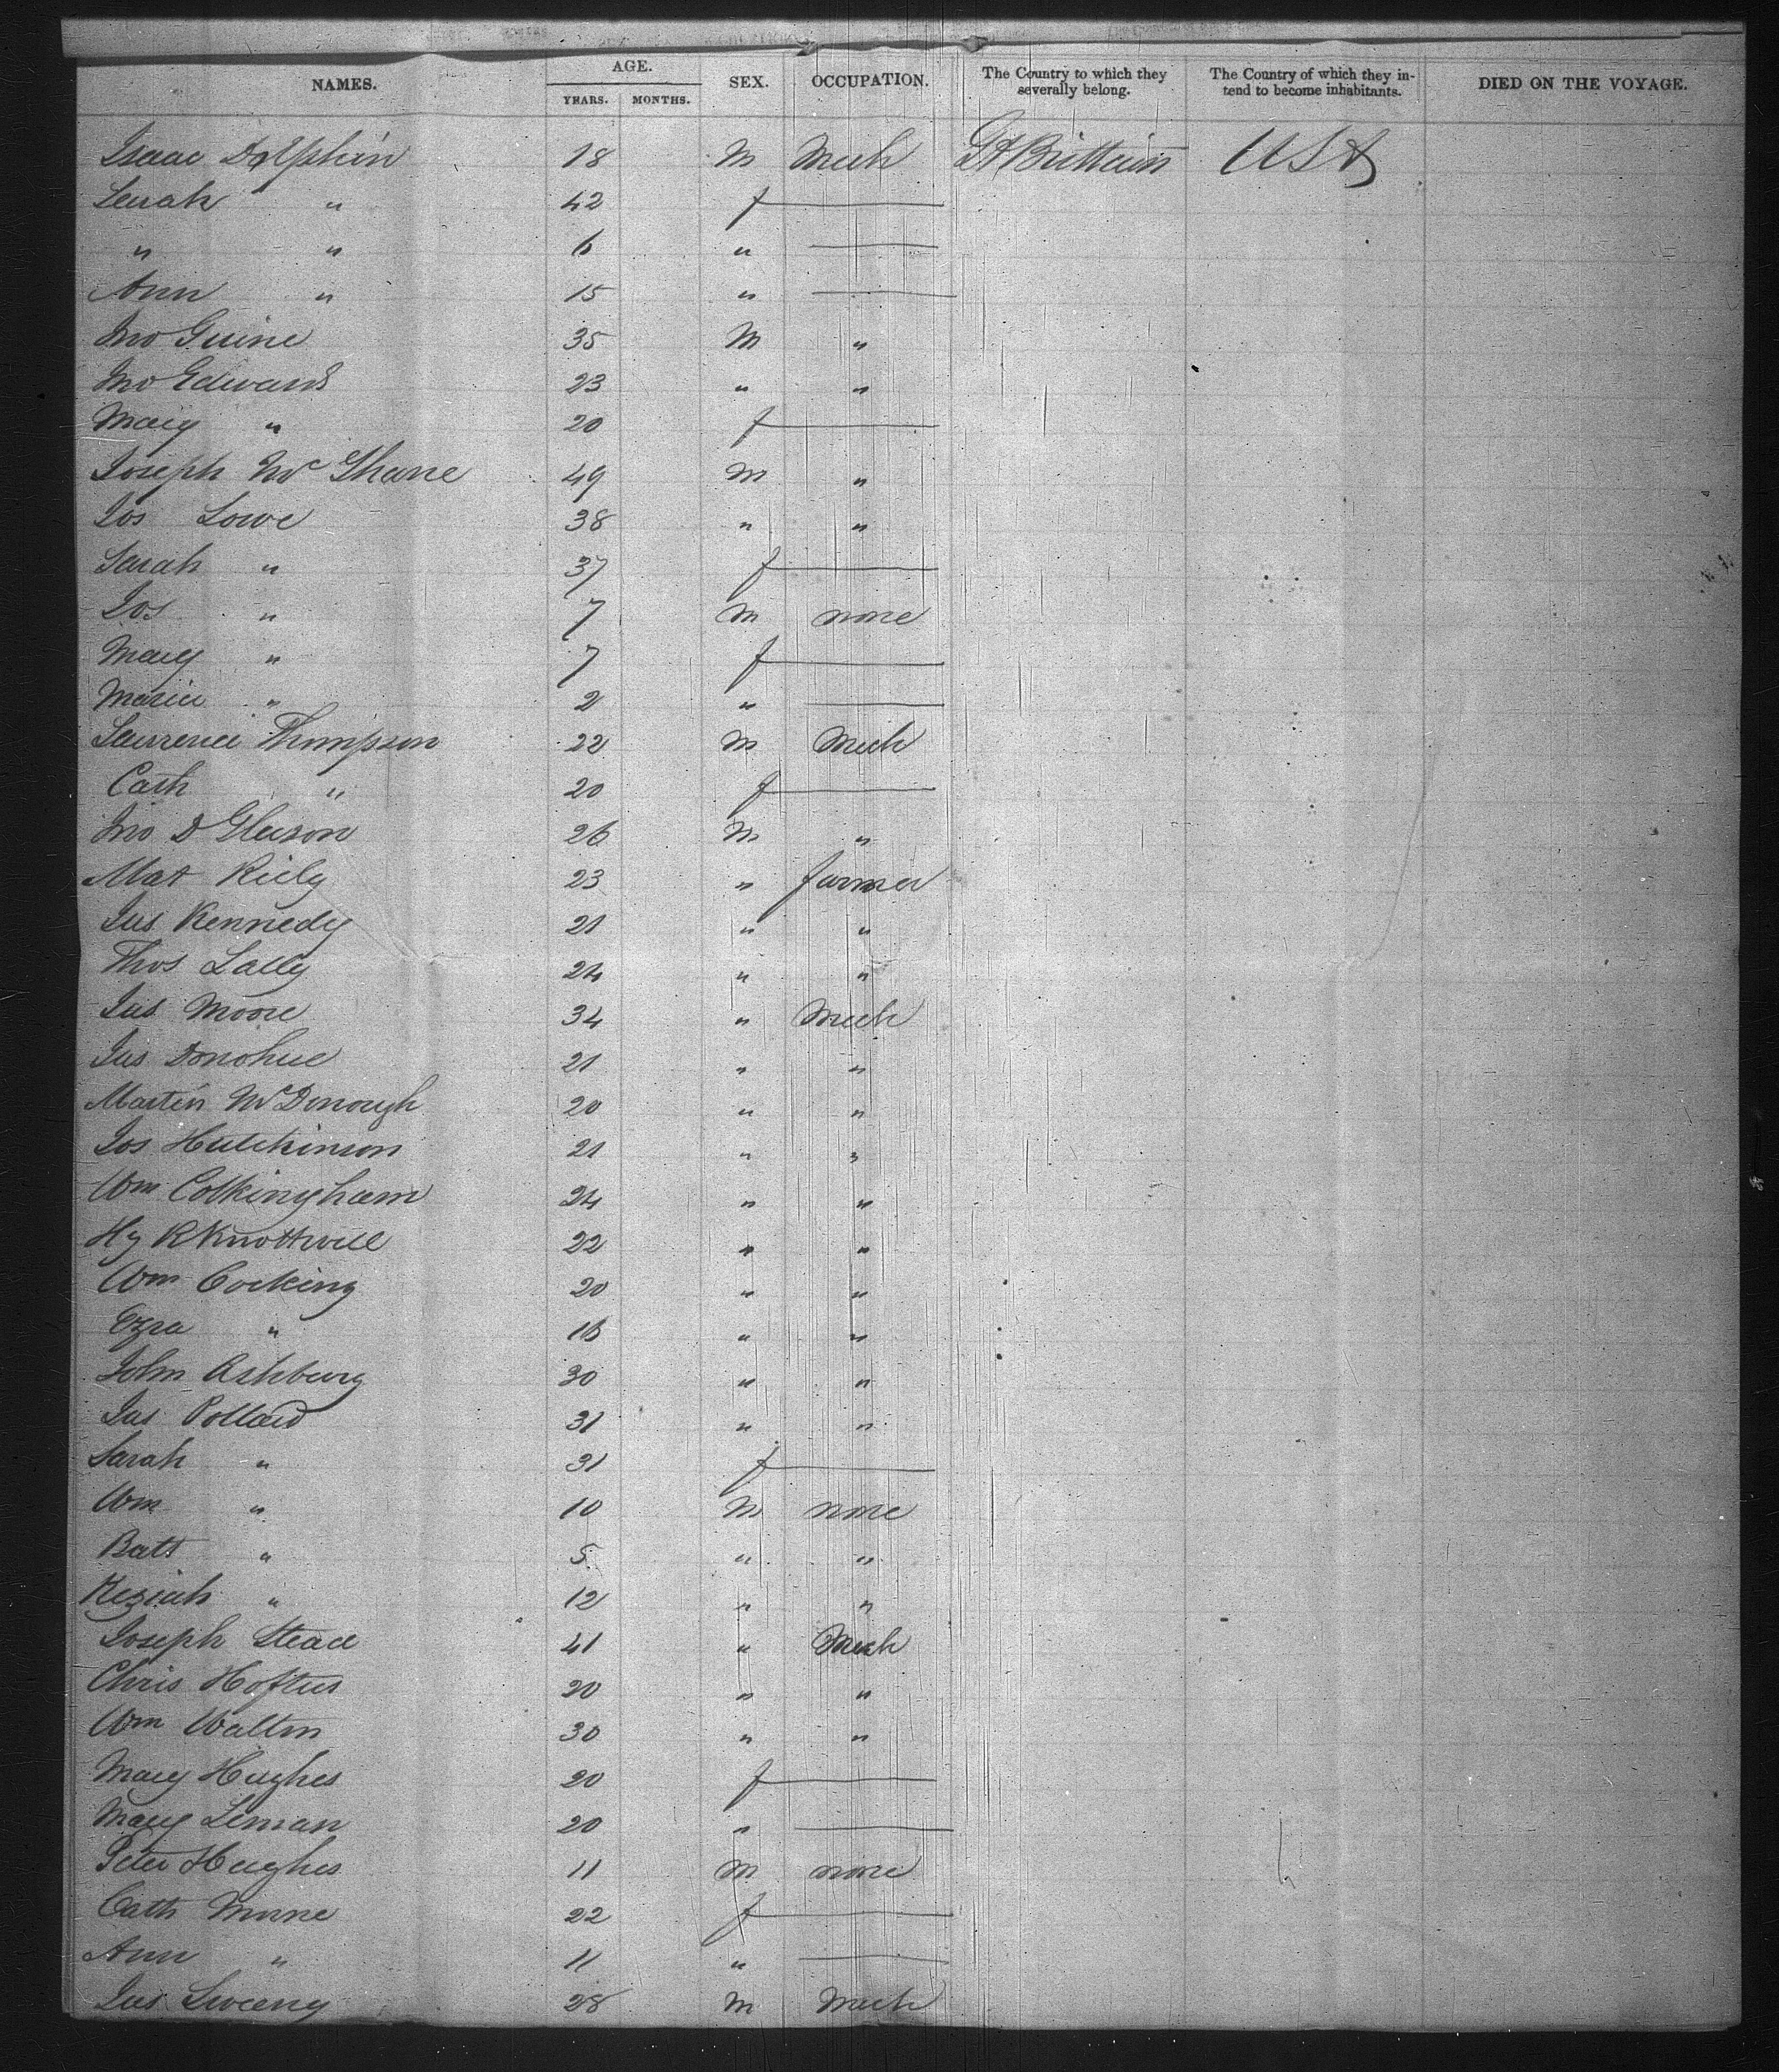 NAMES. AGE. YEARS. MONTHS. SEX. OCCUPATION. The Country to which they severally belong. The Country of which they intend to become inhabitants. DIED ON THE VOYAGE.
Isaac Dolphin 18 M Mech Gt Brittain USA
Sarah " 42 f
" " 6 "
Ann " 15 "
Jno Guine 35 M "
Jno Edwards 23 " "
Mary " 20 f
Joseph Mc Ghane 49 M "
Jos Lowe 38 " "
Sarah " 37 f
Jos " 7 M none
Mary " 7 f
Maria " 2 "
Laurence Thompson 22 M Mech
Cath " 20 f
Jno D Gleeson 26 M "
Mat Riely 23 " farmer
Jas Kennedy 21 " "
Thos Lally 24 " "
Jas Moore 34 " Mech
Jas Donohue 21 " "
Martin McDonough 20 " "
Jos Hutchinson 21 " "
Wm Cottingham 24 " "
Hy R Knottwill 22 " "
Wm Cocking 20 " "
Ezra " 16 " "
John Ashburg 30 " "
Jas Pollard 31 " "
Sarah " 31 f
Wm " 10 M none
Batt " 5 " "
Keziah " 12 " "
Joseph Stead 41 " Mech
Chris Hoftus 20 " "
Wm Walton 30 " "
Mary Hughes 20 f
Mary Lenian 20 "
Peter Hughes 11 M none
Cath Morne 22 f
Ann " 11 "
Jas Sweeny 28 M Mech